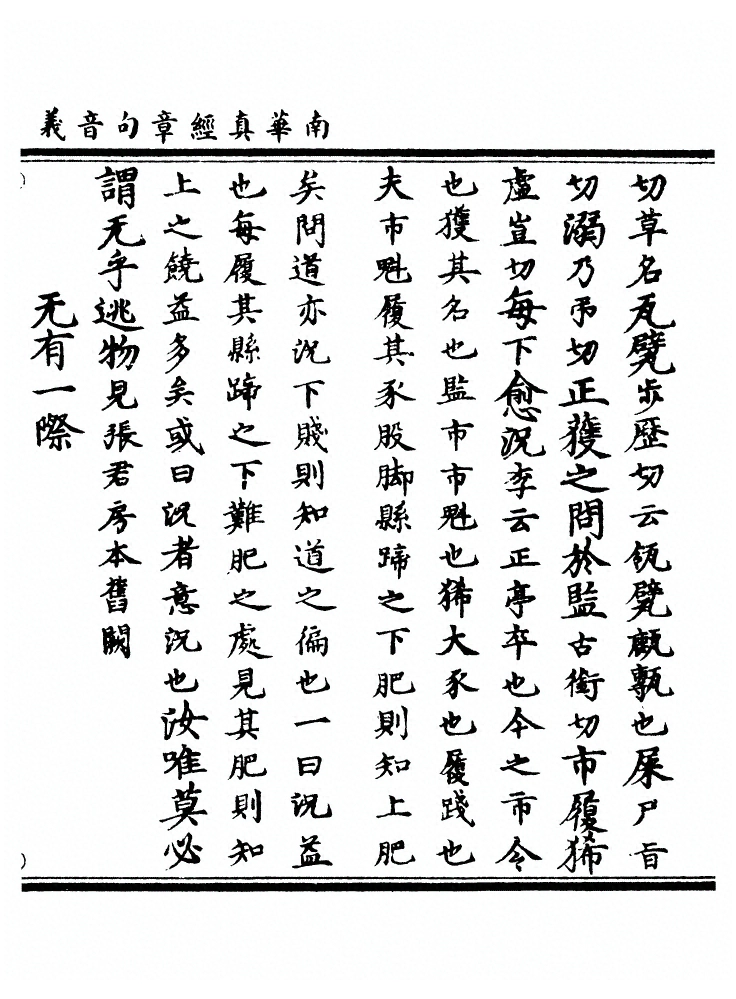 南華真經章句音義
切草名瓦甓步歷切云瓴甓㼾甎也屎尸旨
切溺乃弔切正獲之問於監古銜切市履狶
虛豈切每下愈況李云正亭卒也今之市令
也獲其名也監市市魁也狶大豕也履踐也
夫市魁履其豕股脚縣蹄之下肥則知上肥
矣問道亦況下賤則知道之徧也一曰況益
也每履其縣蹄之下難肥之處見其肥則知
上之饒益多矣或曰況者意況也汝唯莫必
謂无乎逃物見張君房本舊闕
无有一際